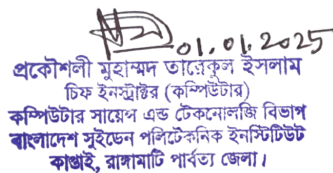 01.01.2025
প্রকৌশলী মুহাম্মদ তারেকুল ইসলাম
চিফ ইনস্ট্রাক্টর (কম্পিউটার)
কম্পিউটার সায়েন্স এন্ড টেকনোলজি বিভাগ
বাংলাদেশ সুইডেন পলিটেকনিক ইনস্টিটিউট
কাপ্তাই, রাঙ্গামাটি পার্বত্য জেলা।